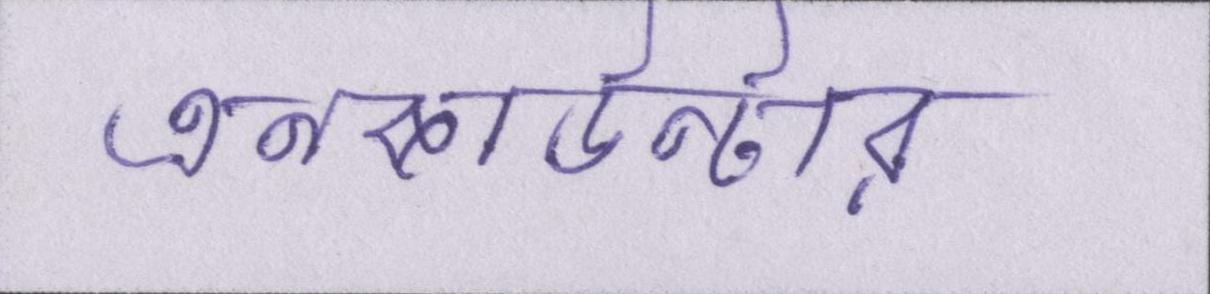 এনকাউন্টার